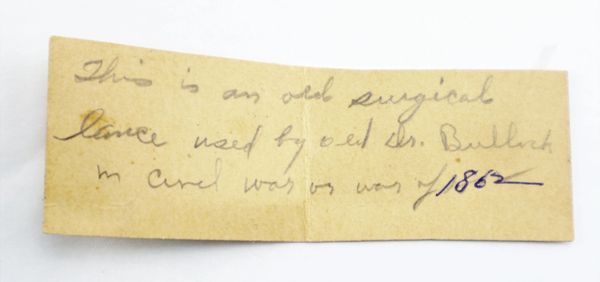 This is an old surgical
lance used by old Dr. Bullock
in Civel war or war of 1862